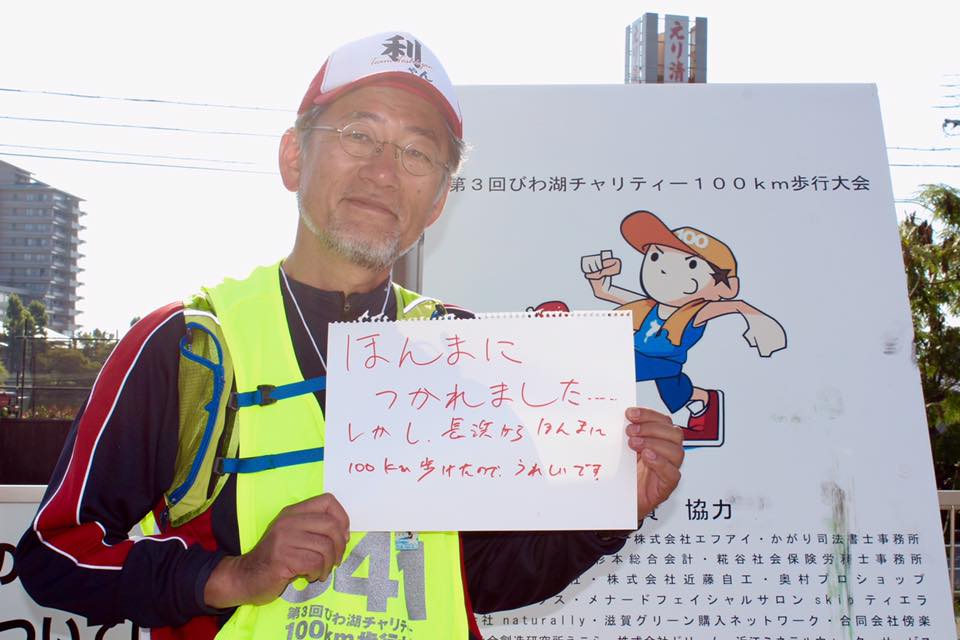 えり清
利
やん
第3回びわ湖チャリティー100km歩行大会
100
ほんまに
つかれました....
しかし、長浜から ほんまに
100km歩けたので、うれしいです
協力
株式会社エフアイ・かがり司法書士事務所
本総合会計・糀谷社会保険労務士事務所
社・株式会社近藤自工・奥村プロショップ
ス・メナードフェイシャルサロン skip ティエラ
社 naturally・滋賀グリーン購入ネットワーク・合同会社傍楽
341
第3回びわ湖チャリテ
100km歩行大
ついて